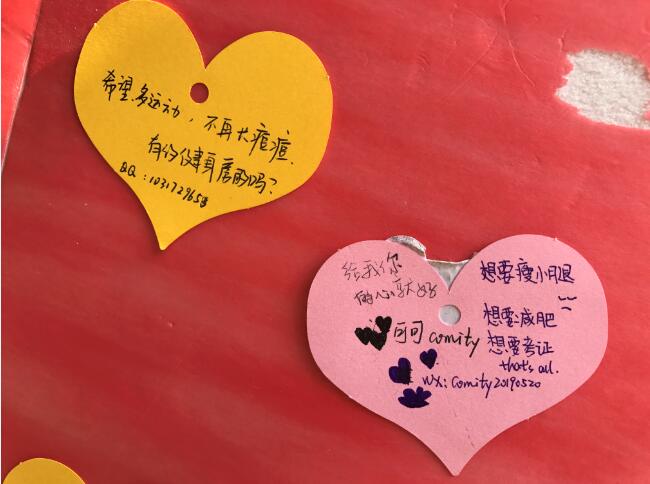 希望多运动，不再长痘痘.
有约健身房的吗？
QQ：1031729658
给我你
的心就好
可可comity
想要瘦小腿
想要减肥
想要考证
that's all.
WX: Comity20190520